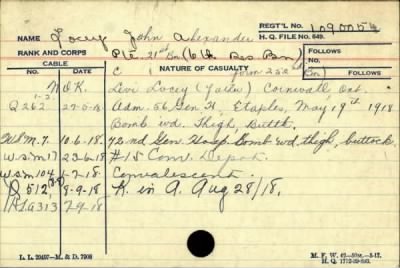 NAME Locey John Alexander REGT'L NO. 1090054
H. Q. FILE NO. 649.
RANK AND CORPS Pte 21st Bn (6th Res. Bn) FOLLOWS
CABLE
NO. DATE NATURE OF CASUALTY FOLLOWS
N.O.K. Levi Locey (father) Cornwall, Ont.
Q262 27-5-18 Adm. 56 Gen H, Etaples, May 19th 1918
Bomb wd. Thigh, Butt.
W.S.M.7. 10.6.18. 72nd Gen. Hosp. Bomb wd thigh, buttock.
W.S.M17 23-6-18 #15 Conv. Depot.
W.S.M104 1-7-18 Convalescent.
512 8-9-18 K. in A. Aug 28/18.
A313 7-9-18
L. L. 20497—M. & D. 7908
M. F. W. 42—50M.—3-17.
H. Q. 1772-39-893.